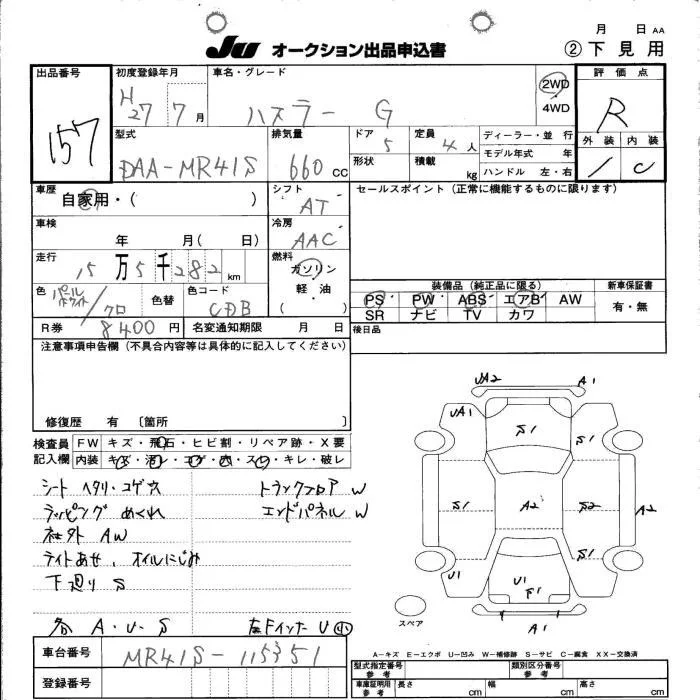 月 日 AA
JU オークション出品申込書 ②下見用
出品番号 157
初度登録年月 H27 7月
車名・グレード ハスラー G
2WD
4WD
評価点 R
外装 内装
/ C
型式 DAA-MR41S
排気量 660 cc
ドア 5
形状
定員 4 人
積載 kg
ディーラー・並 行
モデル年式 年
ハンドル 左・右
車歴 自家用・( )
シフト AT
セールスポイント(正常に機能するものに限ります)
車検 年 月( 日)
冷房 AAC
走行 15万5千282 km
燃料 ガソリン
軽油
( )
色 パールホワイト/クロ
色替
色コード CDB
装備品(純正品に限る)
PS PW ABS エアB AW
SR ナビ TV カワ
新車保証書
有・無
R券 8400 円
名変通知期限 月 日
後日品
注意事項申告欄(不具合内容等は具体的に記入してください)
修復歴 有 〔箇所 〕
検査員記入欄
FW キズ・飛石・ヒビ割・リペア跡・X要
内装 キズ・汚レ・コゲ・穴・スレ・キレ・破レ
シート ヘタリ・コゲ穴 トランクフロア W
ラッピング めくれ エンドパネル W
社外 AW
ライトあせ、オイルにじみ
下廻り S
各 A・U・S 左Fインナー U 小
UA2 A1
UA1 S1 S1
S1 A2 S2 A2
S1
U1 U1 S1
A1
スペア
A-キズ E-エクボ U-凹み W-補修跡 S-サビ C-腐食 XX-交換済
車台番号 MR41S-115351
登録番号
型式指定番号 参考
類別区分番号 参考
車庫証明用 参考 長さ cm 幅 cm 高さ cm